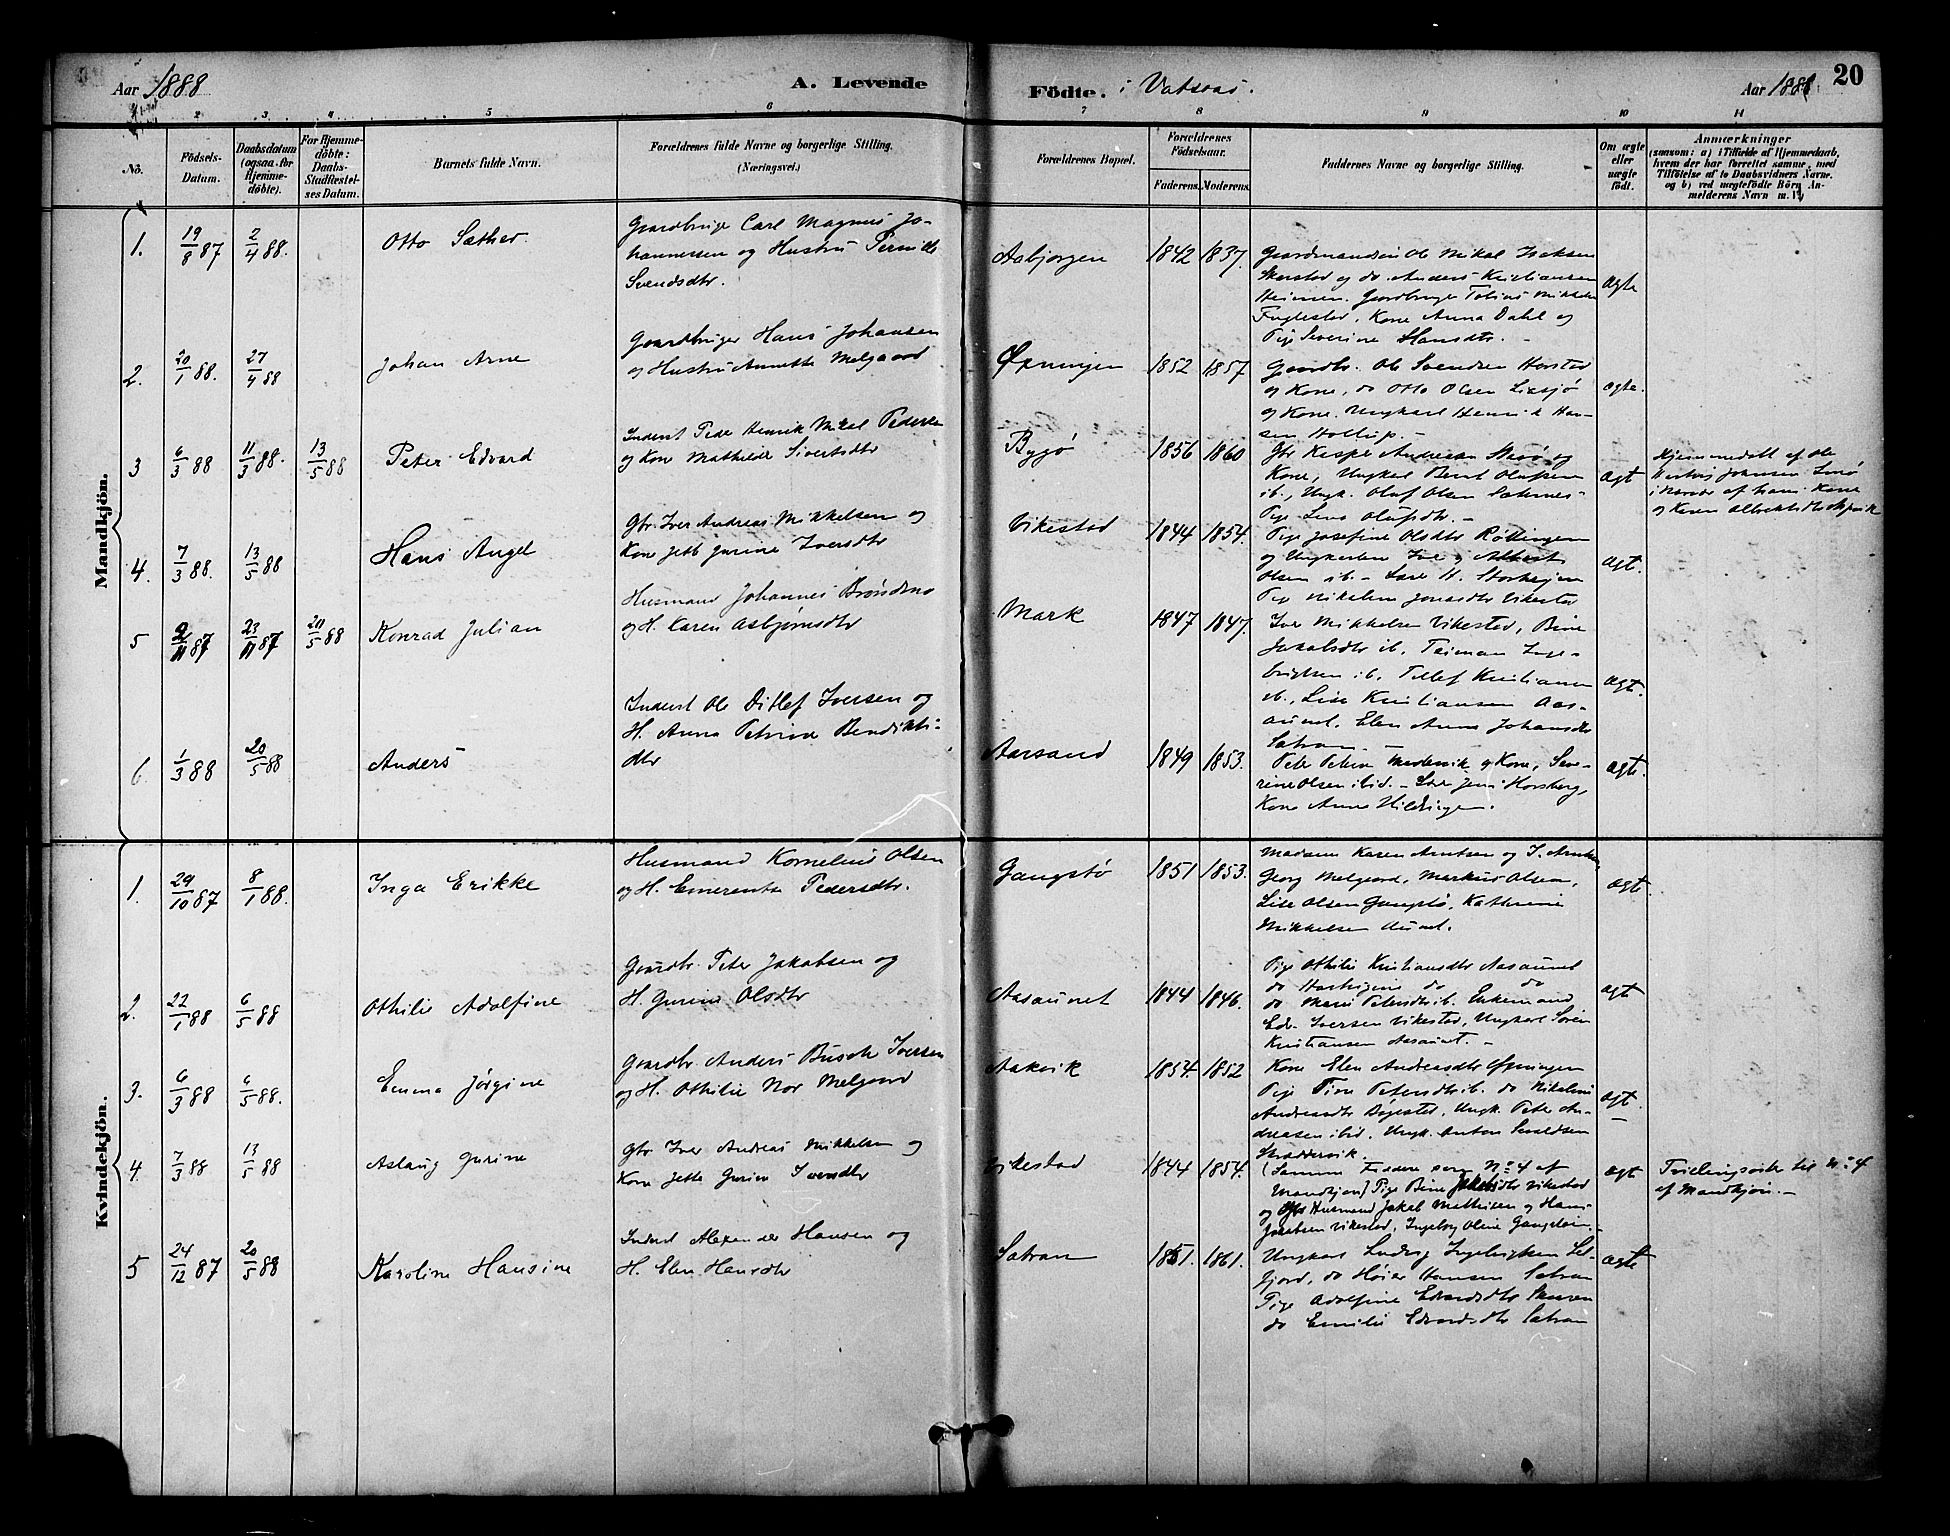 Aar 1888 A. Levende Födte. i Vatsaas. Aar 1888 20
2 3 4 5 6 7 8 9 10 11
No.
Födsels-
Datum.
Daabsdatum
(ogsaa for
Hjemme-
döbte).
For Hjemme-
döbte:
Daabs-
Stadfæstel-
ses Datum.
Barnets fulde Navn.
Forældrenes fulde Navne og borgerlige Stilling.
(Næringsvei.)
Forældrenes Bopæl.
Forældrenes
Födselsaar.
Faderens. Moderens.
Faddernes Navne og borgerlige Stilling.
Om ægte
eller
uægte
födt.
Anmærkninger
(saasom: a) i Tilfælde af Hjemmedaab,
hvem der har forrettet samme, med
Tilföielse af to Daabsvidners Navne.
og b) ved uægtefödte Börn An-
melderens Navn m. V.)
Mandkjön.
1. 19/8 87 2/4 88. Otto Sæther.
Gaardbruger Carl Magnus Jo-
hannessen og Hustru Pernille
Svendsdtr.
Aabjorgen 1842 1837.
Gaardmanden Ole Mikal Isaksen
Skarstad og do. Anders Kristiansen
Heimen. Gaardbruger Tobias Mikkelsen
Fuglestad, Kone Anna Dahl og
Pige Severine Hansdtr. -
ægte
2. 20/1 88. 27/4 88 Johan Arne
Gaardbruger Hans Johansen
og Hustru Annette Melgaard
Øvningen 1852 1857
Gaardbr. Ole Svendsen Horstad
og Kone, do Otto Olsen Lissjø
og Kone. Ungkarl Henrik Han-
sen Holtup. -
ægte.
3 6/3 88 11/3 88. 13/5 88 Peter Edvard
Inderst Peder Henrik Mikal Pedersen
og Kone Mathilde Sivertsdtr
Bygø 1856 1860
Gbr Kasper Andreas og
Kone, Ungkarl Bernt Olufsen
ib., Ungk. Oluf Olsen Satrnes-
Pige Lena Olufsdtr. -
ægt
Hjemmedøbt af Ole
Hartvig Johansen
i Nærvær af hans Kone
og Karen Albrektsdtr
4. 7/3 88. 13/5 88 Hans Angel
Gbr. Iver Andreas Mikkelsen og
Kone Jette Gurine Iversdtr
Vikestad 1844 1854.
Pige Josefine Olsdtr Røttingen
og Ungkarlen Iver og Albert
Olsen ib. - Lars H. Storheien
Pige Nikoline Jonasdtr Vikestad
ægt.
5 2/11 87 23/11 87 20/5 88 Konrad Julian
Husmand Johannes Brøndmo
og H. Karen Asbjørnsdtr
Mark 1847 1847.
Iver Mikkelsen Vikestad, Bine
Jakobsdtr ib. Tarman Inge-
brigtsen ib. Tellef Kristiansen
ib., Lise Kristiansen Aas-
aunet. Elen Anna Johansdtr
Satran. -
ægt.
6. 1/3 88 20/5 88 Anders
Inderst Ole Ditlef Iversen og
H. Anna Petrine Bendikts-
dtr
Aarsand 1849 1853.
Peter Petersen Medervik og Kone, Seve-
rine Olsen ibid. - Lars Jens Horsberg,
Kone Anne Hildringen.
ægte.
Kvindekjön.
1. 29/10 87 8/1 88. Inga Erikke
Husmand Kornelius Olsen
og H. Emerentse Pedersdtr.
Gangstø 1851 1853.
Madame Karen Arntsen og J. Arntsen
Georg Melgaard, Markus Olsen,
Lise Olsen Gangstø, Kathrine
Mikkelsen Aunet.
ægt.
2. 22/1 88 6/5 88 Othilie Adolfine
Gaardbr. Peter Jakobsen og
H. Gurine Olsdtr
Aasaunet 1844 1846.
Pige Othilie Kristiansdtr Aasaunet
do Hartvigine do do
do Marie Petersdtr ib. Enkemand
Edv. Iversen Vikestad, Ungkarl Søren
Kristiansen Aasaunet. -
ægt
3. 6/3 88 6/5 88. Emma Jørgine
Gaardbr. Anders Busch Iversen
og H. Othilie Nor Melgaard
Aakvik 1854. 1852
Kone Elen Andreasdtr Øvningen
Pige Tina Petersdtr ib. do Nikoline
Andreasdtr Bøgestad, Ungk. Peter An-
dreasen ibid, Ungk. Anton Sivaldsen
Straddervik.
ægt. -
4. 7/3 88 13/5 88 Aslaug Gurine
Gbr Iver Andreas Mikkelsen og
Kone Jette Gurine Iversdtr
Vikestad 1844 1854.
(Samme Faddere som No 4 af
Mandkjøn) Pige Bine Jakobsdtr Vikestad
og Husmand Jakob Mathisen og Hans
Jakobsen Vikestad, Ingeborg Oline Gangstøen.
ægt
Tvillingsøster til No 4
af Mandkjøn. -
5 24/12 87 20/5 88 Karoline Hansine
Inderst Alexander Hansen og
H. Elen Hansdtr
Satran 1851. 1861.
Ungkarl Ludvig Ingebrigtsen Sel-
fjord, do Høier Hansen Satran
Pige Adolfine Edvardsdtr
do Emilie Edvardsdtr Satran
ægte